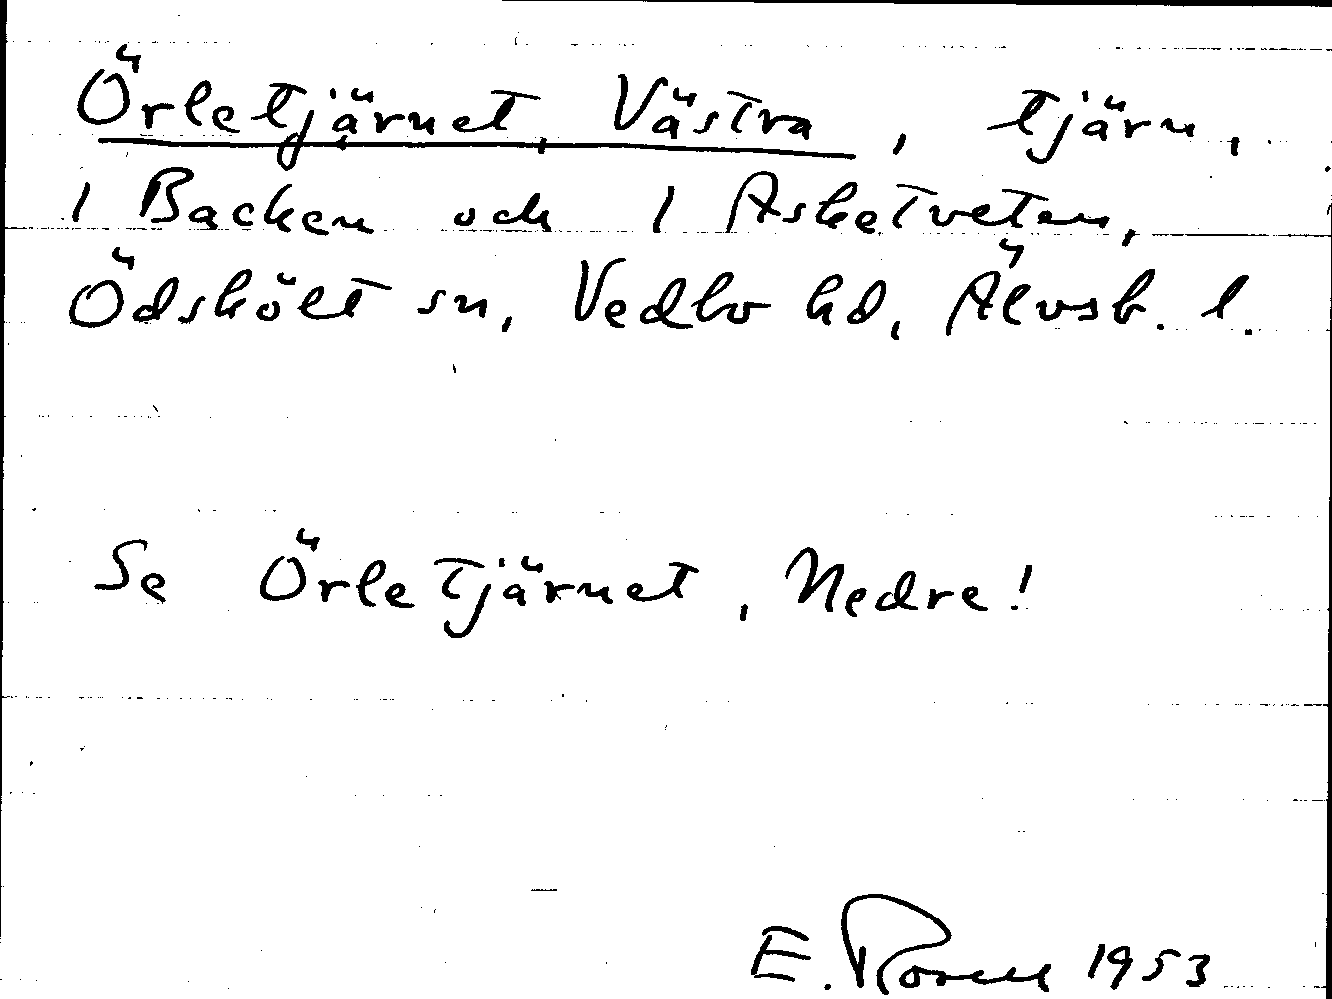 Örletjärnet, Västra, tjärn,
1 Backen och 1 Asketveten,
Ödskölt sn, Vedbo hd, Älvsb. l.
Se Örletjärnet, Nedre!
E. Rosell 1953